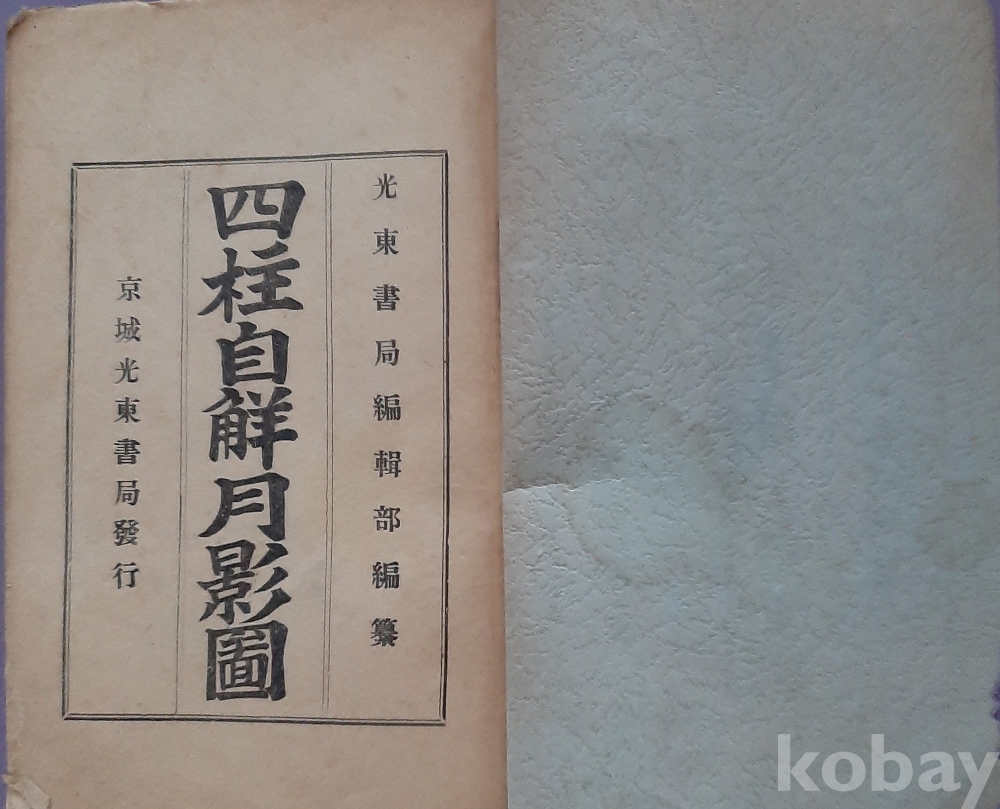 光東書局編輯部編纂
四柱自解月影圖
京城光東書局發行
kobay